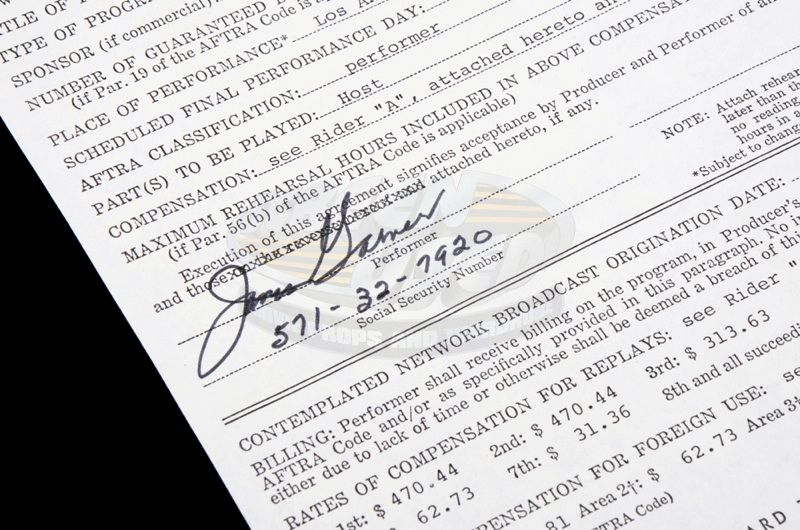 TITLE OF
TYPE OF PROGRA
SPONSOR (if commercial)
NUMBER OF GUARANTEED
(if Par. 19 of the AFTRA Code is
PLACE OF PERFORMANCE* Los A
SCHEDULED FINAL PERFORMANCE DAY:
AFTRA CLASSIFICATION: performer
PART(S) TO BE PLAYED: Host
COMPENSATION: see Rider "A", attached hereto an
MAXIMUM REHEARSAL HOURS INCLUDED IN ABOVE COMPENSAT
(if Par. 56(b) of the AFTRA Code is applicable)
Execution of this agreement signifies acceptance by Producer and Performer of
and those attached hereto, if any.
NOTE: Attach rehear
later than th
no reading
hours in a
*Subject to change
James Garner
Performer
571-32-7920
Social Security Number
CONTEMPLATED NETWORK BROADCAST ORIGINATION DATE:
BILLING: Performer shall receive billing on the program, in Producer's
AFTRA Code and/or as specifically provided in this paragraph. No
either due to lack of time or otherwise shall be deemed a breach of the
RATES OF COMPENSATION FOR REPLAYS: see Rider "
1st: $ 470.44 2nd: $ 470.44 3rd: $ 313.63
62.73 7th: $ 31.36 8th and all succeedi
COMPENSATION FOR FOREIGN USE: se
81 Area 2†: $ 62.73 Area 3
AFTRA Code)